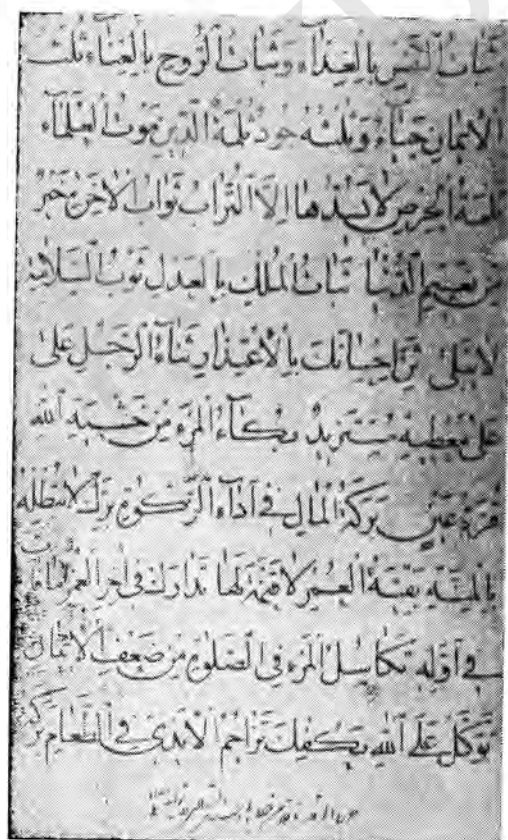 ثَبَاتُ النَّفْسِ بِالْغِذَاءِ وَثَبَاتُ الرُّوحِ بِالْغِنَاءِ ثُلُثُ
الْاِيمَانِ حَيَاءٌ وَثُلُثُهُ جُودٌ ثُلْمَةُ الدِّينِ مَوْتُ الْعُلَمَاءِ
ثُلْمَةُ الْحِرْصِ لَا يَسُدُّهَا اِلَّا التُّرَابُ ثَوَابُ الْاٰخِرَةِ خَيْرٌ
مِنْ نَعِيمِ الدُّنْيَا ثَبَاتُ الْمُلْكِ بِالْعَدْلِ ثَوْبُ السَّلَامَةِ
لَا يَبْلَى ثَنِّ اِحْسَانَكَ بِالْاِعْتِذَارِ ثَنَاءُ الرَّجُلِ عَلَى
عَلَى مُعْطِيهِ مُسْتَزِيدٌ بُكَاءُ الْمَرْءِ مِنْ خَشْيَةِ اللهِ
قُرَّةُ عَيْنٍ بَرَكَةُ الْمَالِ فِي اَدَاءِ الزَّكٰوةِ بِرَّكَ لَا تُبْطِلْهُ
بِالْمِنَّةِ بَقِيَّةُ الْعُمْرِ لَا قِيمَةَ لَهَا تَدَارَكْ فِي اٰخِرِ الْعُمْرِ مَا فَاتَ
فِي اَوَّلِهِ تَكَاسُلُ الْمَرْءِ فِي الصَّلٰوةِ مِنْ ضَعْفِ الْاِيمَانِ
تَوَكَّلْ عَلَى اللهِ يَكْفِكَ تَزَاحُمُ الْاَيْدِي فِي الطَّعَامِ بَرَكَةٌ